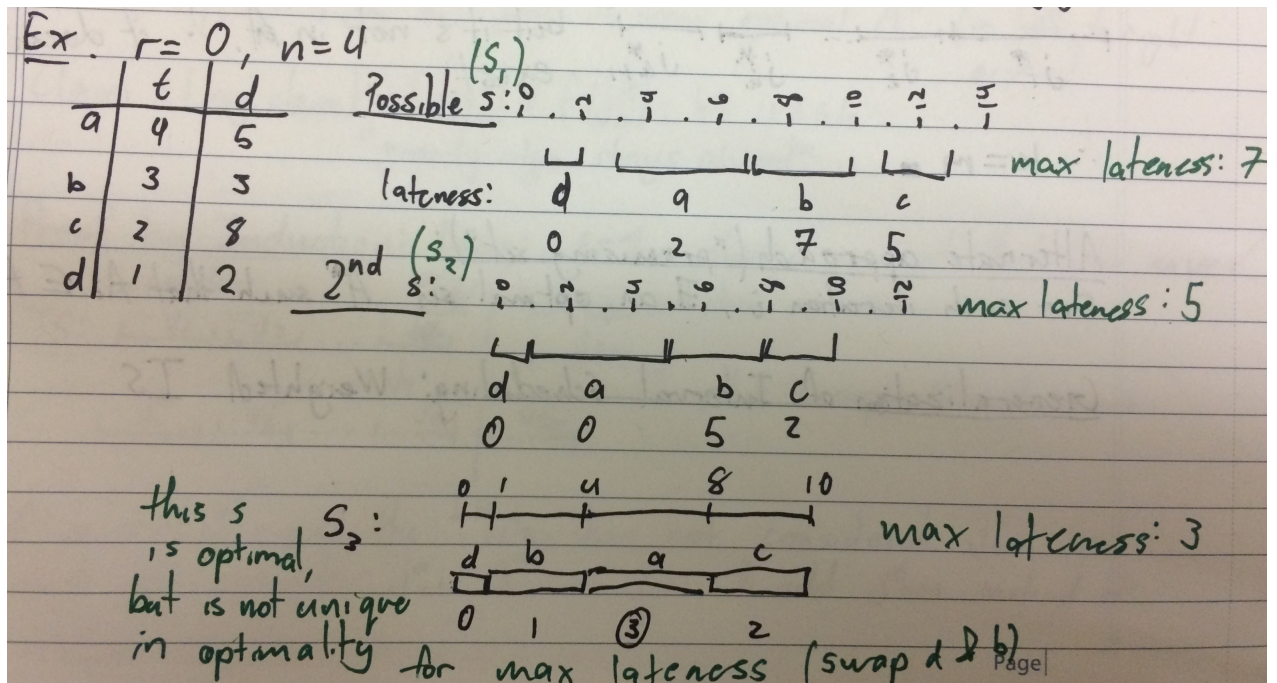 Ex. r = 0, n = 4
t d
a 4 5
b 3 3
c 2 8
d 1 2
(S1)
Possible s: 0 2 4 6 8 10 12 14
max lateness: 7
lateness: d a b c
0 2 7 5
2nd (S2) s: 0 2 4 6 8 10 12
max lateness: 5
d a b c
0 0 5 2
0 1 4 8 10
S3:
max lateness: 3
d b a c
0 1 3 2
this s
is optimal,
but is not unique
in optimality for max lateness (swap d & b)
Page